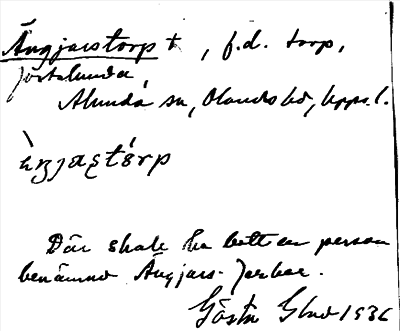 Ängjarstorp †, f.d. torp,
Jörslunda,
Alunda sn, Olands hd, Upps. l.
ὲŋjaʂtórp
Där skall ha bott en person
benämnd Ängjars-Jerker.
Gösta Glad 1936